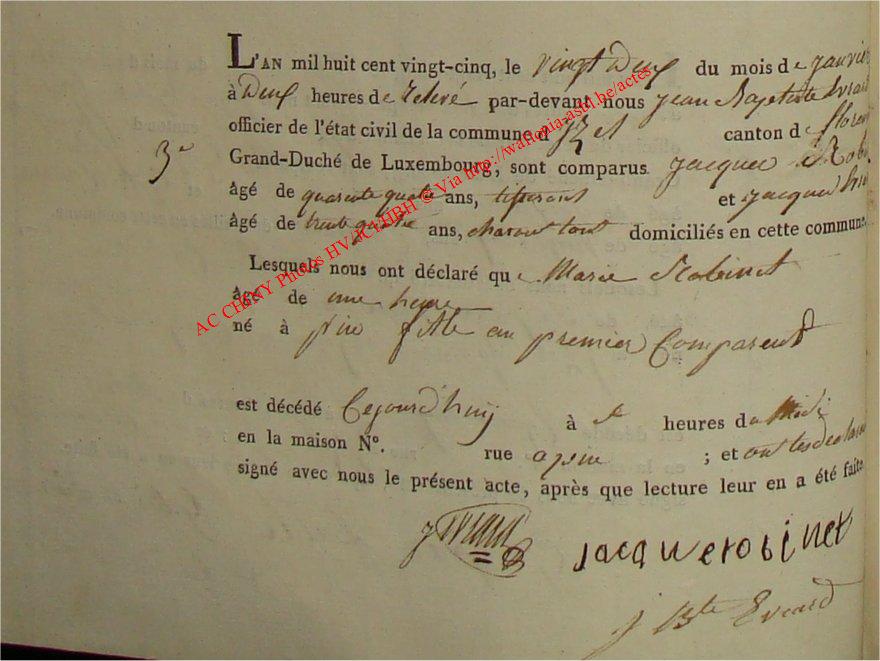 L'AN mil huit cent vingt-cinq, le vingt deux du mois de janvier
à Deux heures de relevé par-devant nous Jean Baptiste Evrard
officier de l'état civil de la commune d'Izel canton de floren
3e Grand-Duché de Luxembourg, sont comparus Jacques Robi
âgé de quarente quatre ans, tisserant et jacques
âgé de trente quatre ans, domiciliés en cette commune
Lesquels nous ont déclaré que Marie Robinet
âgé de une heure
né à fille au premier Comparent
est décédé Cejourd'huy à heures du Midi
en la maison N°. rue ; et
signé avec nous le présent acte, après que lecture leur en a été faite
jacquerobinet
J Bte Evrard
AC CHINY Photos HV/JCV/HBH © Via http://wallonia-asbl.be/actes